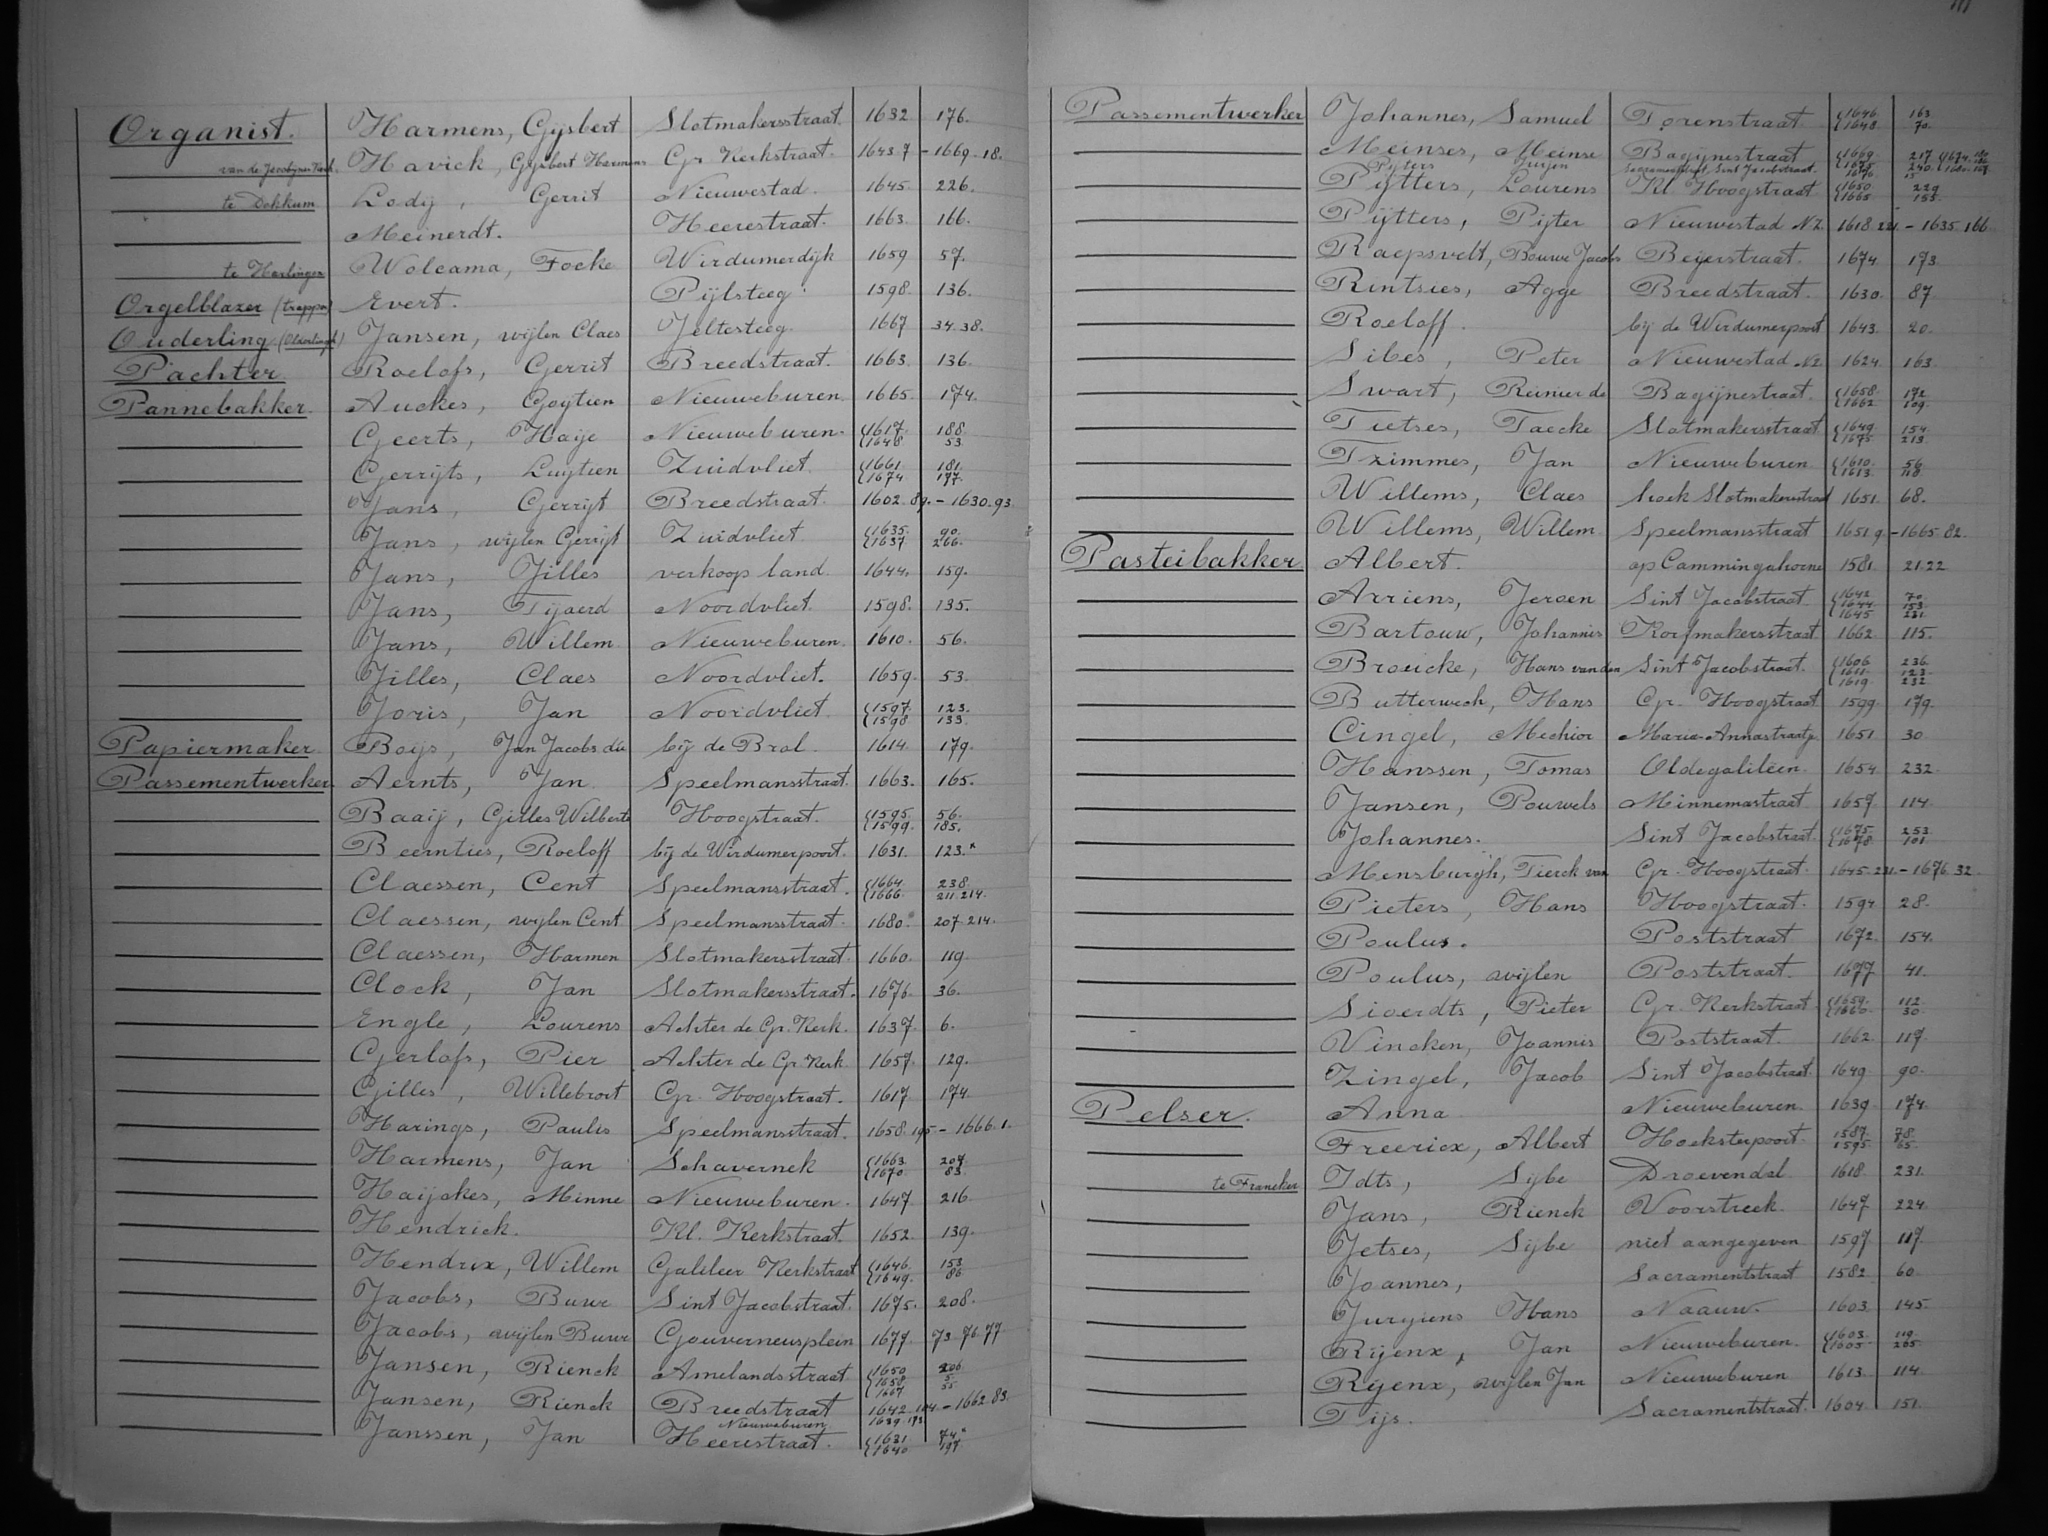 Organist. Harmens, Gijsbert Slotmakersstraat. 1632 176.
van de Jacobijner Kerk. Havick, Gijsbert Harmens Gr. Kerkstraat. 1643.7 - 1669.18.
te Dokkum Lodij, Gerrit Nieuwestad. 1645. 226.
Meinerdt. Heerestraat. 1663. 166.
te Harlingen Wolcama, Focke Wirdumerdijk 1659 57.
Orgelblazer (trapper) Evert. Pijlsteeg. 1598. 136.
Ouderling Jansen, wijlen Claes Jeltesteeg. 1667 34.38.
Pachter. Roelofs, Gerrit Breedstraat. 1663. 136.
Pannebakker. Auckes, Goytien Nieuweburen. 1665. 174.
Geerts, Haije Nieuweburen. 1617. 188. 1648 53.
Gerrijts, Luytien Zuidvliet. 1661. 181. 1674 177.
Jans, Gerrijt Breedstraat. 1602.89. - 1630.93
Jans, wijlen Gerrijt Zuidvliet 1635. 90. 1637 266.
Jans, Jilles verkoop land. 1644. 159.
Jans, Tijaerd Noordvliet. 1598. 135.
Jans, Willem Nieuweburen. 1610. 56.
Jilles, Claes Noordvliet. 1659. 53.
Joris, Jan Noordvliet. 1597. 123. 1598 133.
Papiermaker. Boijs, Jan Jacobs du bij de Brol. 1614. 179.
Passementwerker Aernts, Jan Speelmansstraat. 1663. 165.
Baaij, Gilles Wilberts Hoogstraat. 1595. 56. 1599. 185.
Beernties, Roeloff bij de Wirdumerpoort. 1631. 123.*
Claessen, Cent Speelmansstraat. 1664. 238. 1666. 211.214.
Claessen, wijlen Cent Speelmansstraat. 1680. 207.214.
Claessen, Harmen Slotmakersstraat. 1660. 119
Clock, Jan Slotmakersstraat. 1676. 36.
Engle, Lourens Achter de Gr. Kerk. 1637. 6.
Gerlofs, Pier Achter de Gr. Kerk. 1657. 129.
Gilles, Willebrort Gr. Hoogstraat. 1617 174.
Harings, Paulus Speelmansstraat. 1658.195 - 1666.1.
Harmens, Jan Schavernek 1663. 207. 1670. 83.
Haijckes, Minne Nieuweburen. 1647 216
Hendrick. Kl. Kerkstraat. 1652. 139.
Hendrix, Willem Galileer Kerkstraat 1646. 153 1649. 86
Jacobs, Buwe Sint Jacobstraat. 1675. 208.
Jacobs, wijlen Buwe Gouverneursplein 1677. 73.76.77
Jansen, Rienck Amelandsstraat 1650 206 1658. 5. 1667 55
Jansen, Rienck Breedstraat 1642.104. - 1662.83.
Janssen, Jan Nieuweburen 1639.193 Heerestraat. 1631 74* 1640 197
Passementwerker Johannes, Samuel Torenstraat 1646. 163 1648. 70.
Meinses, Meinse Bagijnestraat 1669. 217
Pijters Sint Jacobstraat. 1675 240.
Pijtters, Lourens Kl. Hoogstraat 1650. 229 1665 155.
Pijtters, Pijter Nieuwestad N.Z. 1618.221. - 1635.166
Raepsvelt, Bouwe Jacobs Beijerstraat. 1674. 173.
Rintsies, Agge Breedstraat. 1630. 87
Roeloff. bij de Wirdumerpoort 1643. 20.
Sibes, Peter Nieuwestad N.Z. 1624. 163
Swart, Reinier de Bagijnestraat. 1658. 172 1662 109.
Tietses, Taecke Slotmakersstraat 1649. 154 1675 213
Tzimmes, Jan Nieuweburen 1610. 56 1613. 118
Willems, Claes hoek Slotmakersstraat 1651. 68.
Willems, Willem Speelmansstraat 1651.9. - 1665.82.
Pasteibakker Albert. op Cammingahorne 1581 21.22
Arriens, Jeroen Sint Jacobstraat. 1642 70. 1644. 153. 1645 231.
Bartouw, Johannis Korfmakersstraat 1662. 115.
Broeicke, Hans van den Sint Jacobstraat. 1606. 236. 1611. 123. 1619. 232
Butterwech, Hans Gr. Hoogstraat 1599 179.
Cingel, Mechior Maria-Annastraatje 1651 30
Hanssen, Tomas Oldegalileën. 1654. 232.
Jansen, Pouwels Minnemastraat 1657 114.
Johannes. Sint Jacobstraat. 1675 253. 1678. 101
Mensburgh, Tierck van Gr. Hoogstraat. 1645.231. - 1676.32.
Pieters, Hans Hoogstraat. 1594 28.
Poulus. Poststraat 1672. 154.
Poulus, wijlen Poststraat. 1677 41.
Sioerdts, Pieter Gr. Kerkstraat. 1659. 112 1660. 30
Vincken, Joannis Poststraat. 1662. 117.
Zingel, Jacob Sint Jacobstraat. 1649. 90.
Pelser. Anna Nieuweburen. 1639. 174.
Freeriox, Albert Hoeksterpoort. 1587. 78. 1595. 65.
te Franeker Idts, Sijbe Droevendal 1618. 231.
Jans, Rienck Voorstreek. 1647 224
Jetses, Sijbe niet aangegeven 1597 117.
Joannes, Sacramentstraat 1582 60
Jurgiens Hans Naauw. 1603. 145.
Rijenx, Jan Nieuweburen. 1603. 119. 1605. 265.
Rijenx, wijlen Jan Nieuweburen 1613. 114.
Tijs. Sacramentstraat. 1604 151.